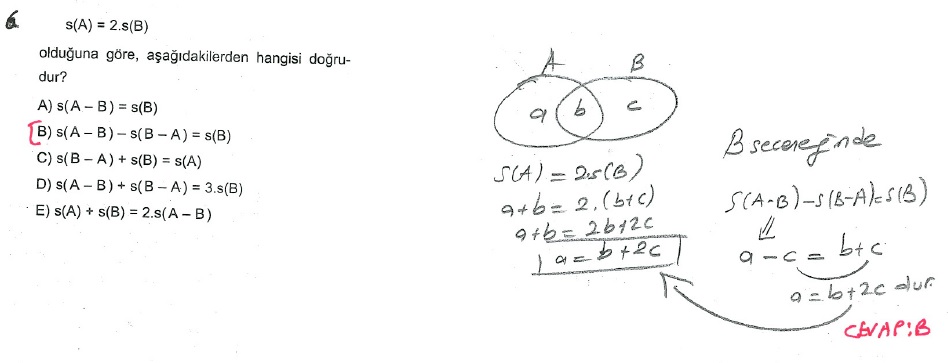 6
s(A) = 2.s(B)
olduğuna göre, aşağıdakilerden hangisi doğru-
dur?
A) s(A – B) = s(B)
B) s(A – B) – s(B – A) = s(B)
C) s(B – A) + s(B) = s(A)
D) s(A – B) + s(B – A) = 3.s(B)
E) s(A) + s(B) = 2.s(A – B)
A B
a b c
s(A) = 2s(B)
a+b = 2.(b+c)
a+b = 2b+2c
a = b+2c
B seceneğinde
s(A-B)-s(B-A)=s(B)
a-c = b+c
a = b+2c olur.
CEVAP:B